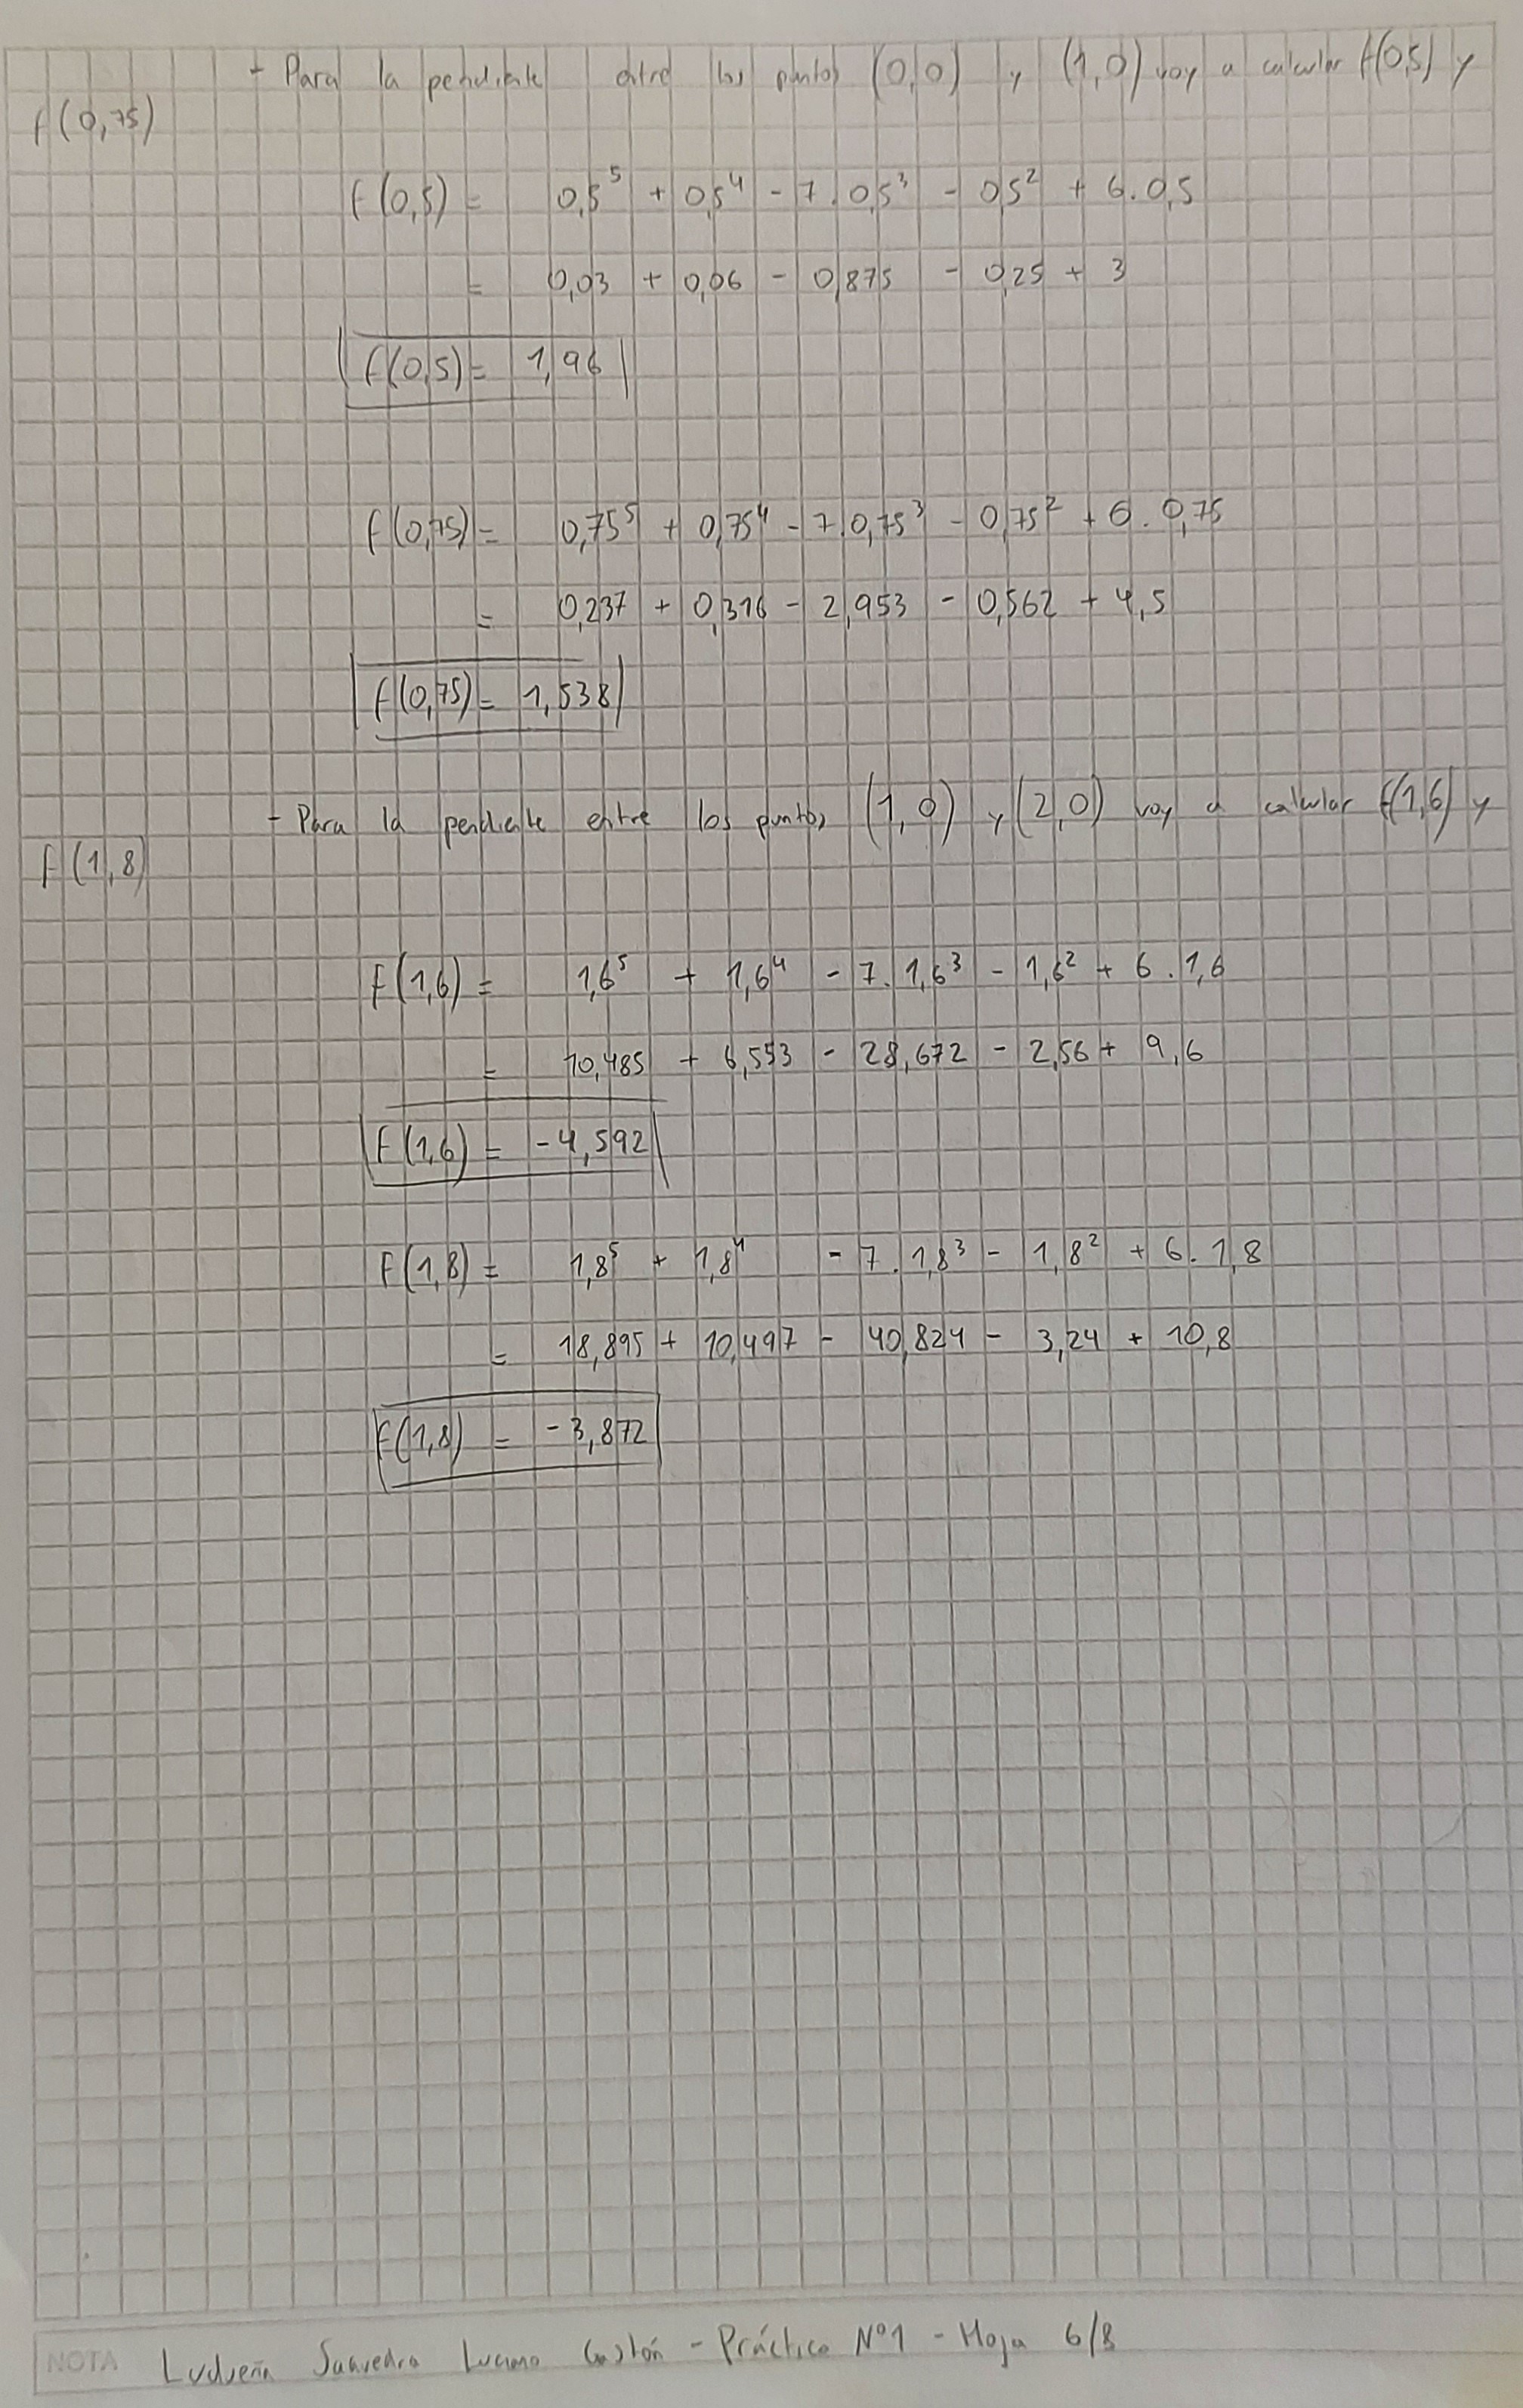 - Para la pendiente entre los puntos (0,0) y (1,0) voy a calcular f(0,5) y
f(0,75)
f(0,5) = 0,5⁵ + 0,5⁴ - 7.0,5³ - 0,5² + 6.0,5
= 0,03 + 0,06 - 0,875 - 0,25 + 3
f(0,5) = 1,96
f(0,75) = 0,75⁵ + 0,75⁴ - 7.0,75³ - 0,75² + 6.0,75
= 0,237 + 0,316 - 2,953 - 0,562 + 4,5
f(0,75) = 1,538
- Para la pendiente entre los puntos (1,0) y (2,0) voy a calcular f(1,6) y
f(1,8)
f(1,6) = 1,6⁵ + 1,6⁴ - 7.1,6³ - 1,6² + 6.1,6
= 10,485 + 6,553 - 28,672 - 2,56 + 9,6
f(1,6) = -4,592
f(1,8) = 1,8⁵ + 1,8⁴ - 7.1,8³ - 1,8² + 6.1,8
= 18,895 + 10,497 - 40,824 - 3,24 + 10,8
f(1,8) = -3,872
NOTA Ludueña Saavedra Luciano Gastón - Práctico Nº1 - Hoja 6/8